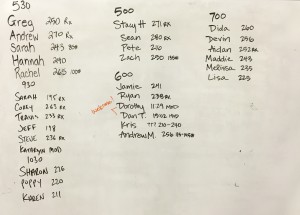 530
Greg 250 Rx
Andrew 270 Rx
Sarah 243
Hannah 290
Rachel 265
930
SARAH 195 Rx
COREY 263 Rx
TRAVIS 233 Rx
JEFF 198
STEVE 236 Rx
KATHRYN MOD
1030
SHARON 276
POPPY 220
KAREN 211
500
Stacy H 271 Rx
Sean 280 Rx
Pete 210
Zach 250
600
Jamie 241
Ryan 238 Rx
Dorothy
Dan T.
Kris
Andrew M.
700
Dida 260
Devin 256
Aidan 252 Rx
Maddie 243
Melissa 233
Lisa 223